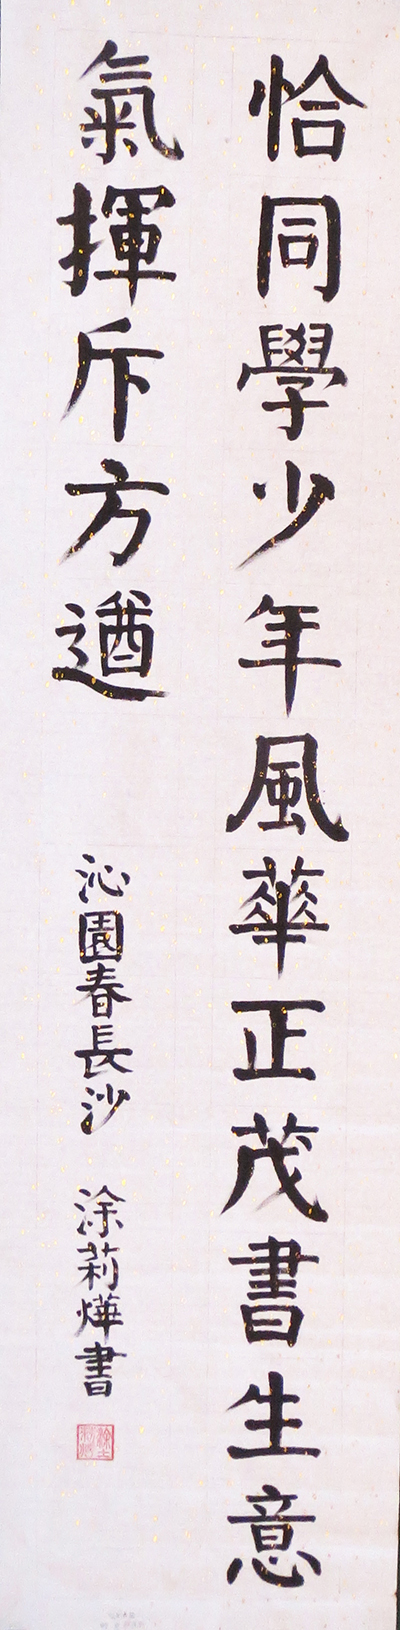 恰同學少年風華正茂書生意
氣揮斥方遒
沁園春長沙
涂莉燁書